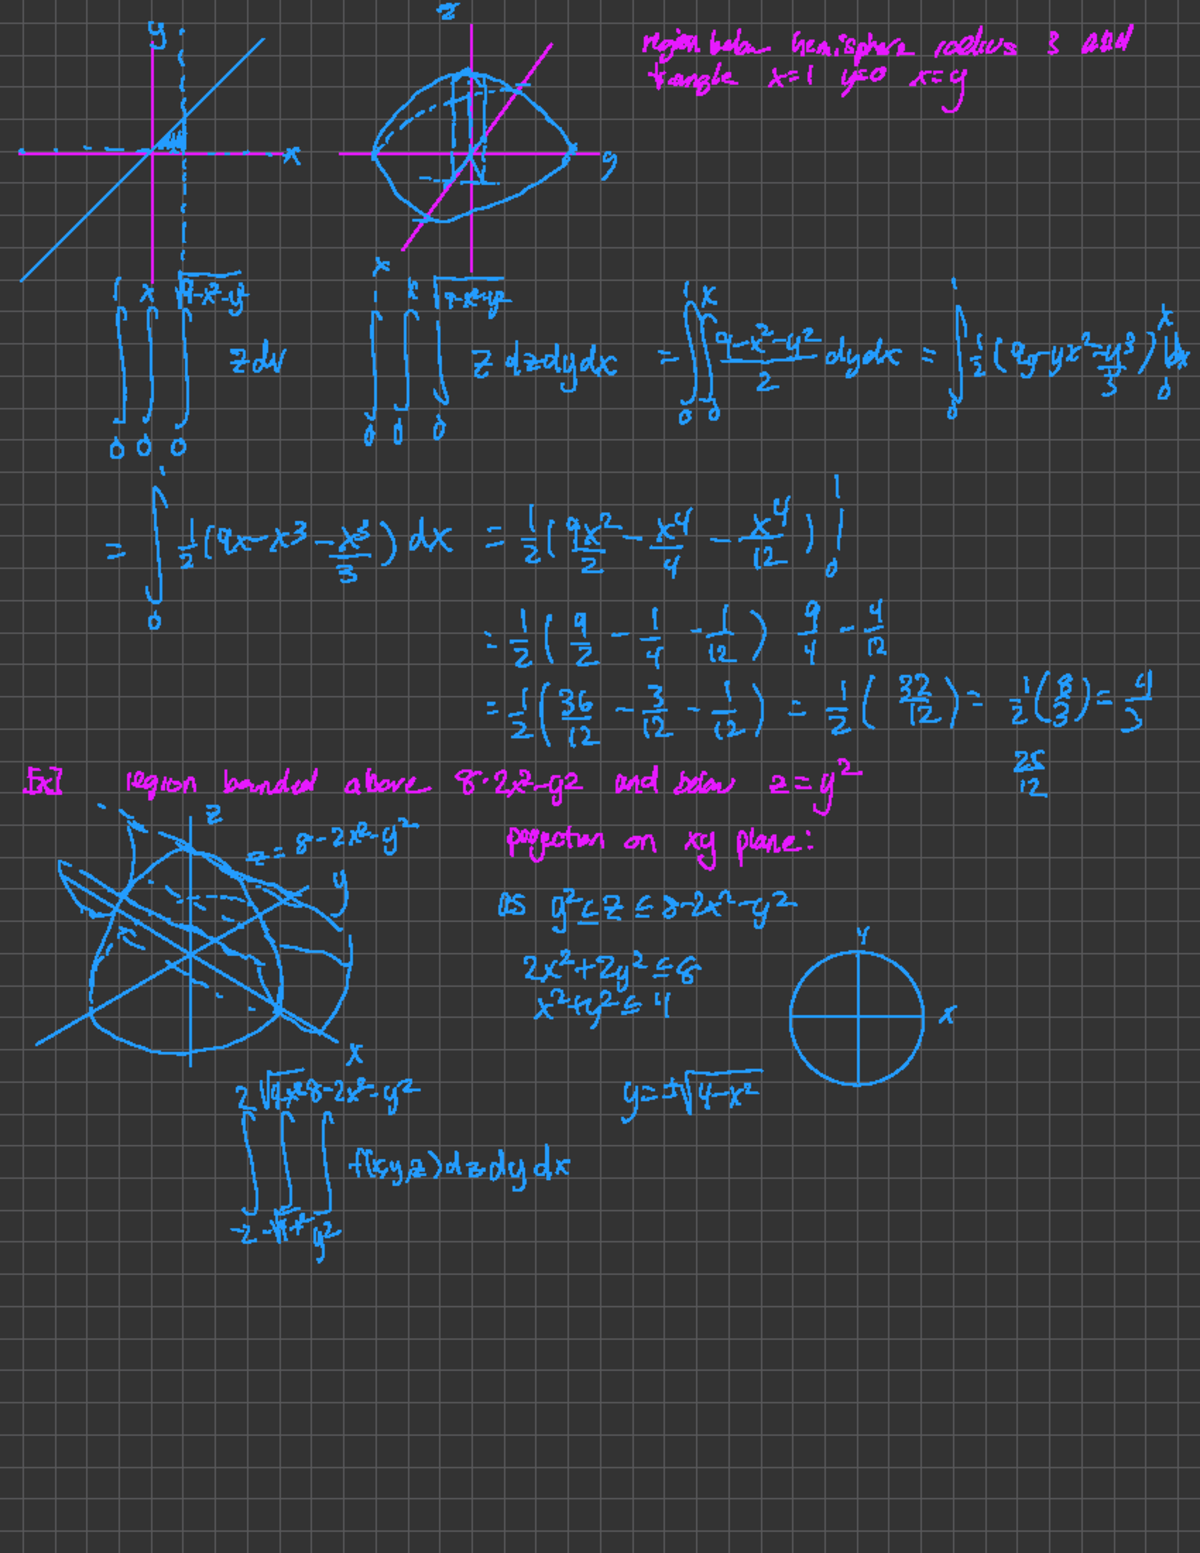 y
z
region below hemisphere radius 3 and
triangle x=1 y=0 x=y
x
y
x
∫₀¹ ∫₀ˣ ∫₀^√(9-x²-y²) z dv
∫₀¹ ∫₀ˣ ∫₀^√(9-x²-y²) z dz dy dx = ∫₀¹ ∫₀ˣ (9-x²-y²)/2 dy dx = ∫₀¹ 1/2 (9y-yx²-y³/3) |₀ˣ dx
= ∫₀¹ 1/2 (9x-x³-x³/3) dx = 1/2 (9x²/2 - x⁴/4 - x⁴/12) |₀¹
= 1/2 (9/2 - 1/4 - 1/12) 9/4 - 4/12
= 1/2 (36/12 - 3/12 - 1/12) = 1/2 (32/12) = 1/2 (8/3) = 4/3
25/12
Ex] region bounded above 8-2x²-y² and below z=y²
z
z=8-2x²-y²
projection on xy plane:
y
as y² ≤ z ≤ 8-2x²-y²
2x²+2y² ≤ 8
x²+y² ≤ 4
y
x
x
∫₋₂² ∫_(-√(4-x²))^√(4-x²) ∫_(y²)^(8-2x²-y²) f(x,y,z) dz dy dx
y=±√(4-x²)